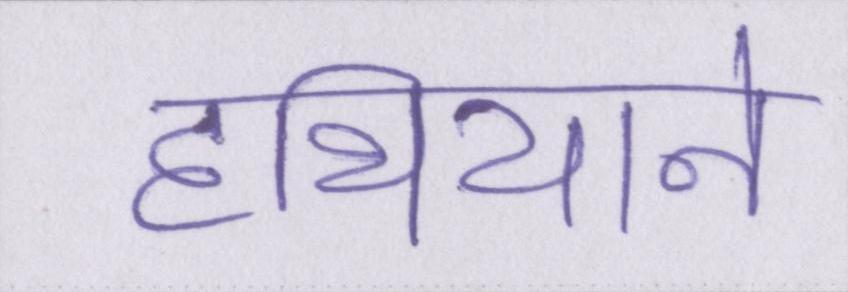 हथियाने